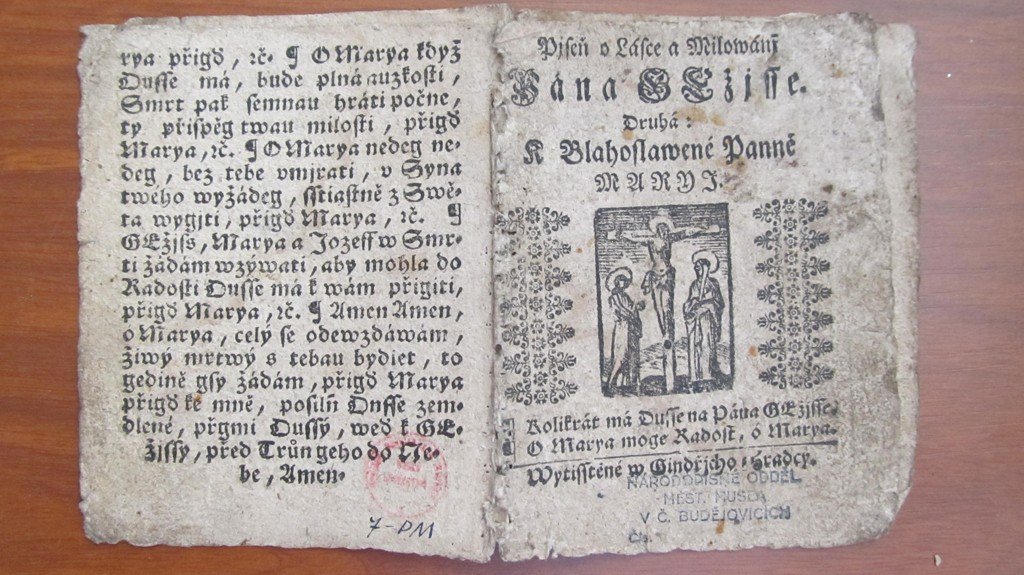 rya přigď, ꝛč. ¶ O Marya když
Dusse má, bude plná auzkosti,
Smrt pak semnau hráti počne,
ty přispěg twau milosti, přigď
Marya, ꝛč. ¶ O Marya nedeg ne-
deg, bez tebe vmjrati, v Syna
twého wyžádeg, sstiastně z Swě-
ta wygjti, přigď Marya, ꝛč. ¶
GEžjss, Marya a Jozeff w Smr-
ti žádám wzýwati, aby mohla do
Radosti Dusse má k wám přigiti,
přigď Marya, ꝛč. ¶ Amen Amen,
o Marya, celý se odewzdáwám,
žiwý mrtwý s tebau bydlet, to
gedině gsy žádám, přigď Marya
přigď ke mně, posilň Dusse zem-
dlené, přgmi Dussy, weď k GE-
žissy, před Trůn geho do Ne-
be, Amen.
7-PM
Pjseň o Lásce a Milowánj
Pána GEžjsse.
Druhá:
K Blahoslawené Panně
MARYJ.
Kolikrát má Dusse na Pána GEžjsse.
O Marya moge Radost, ó Marya.
Wytisstěné w Gindřjcho-Hradcy.
NÁRODOPISNÉ ODDĚL.
MĚST. MUSEA
V Č. BUDĚJOVICÍCH
Čís.